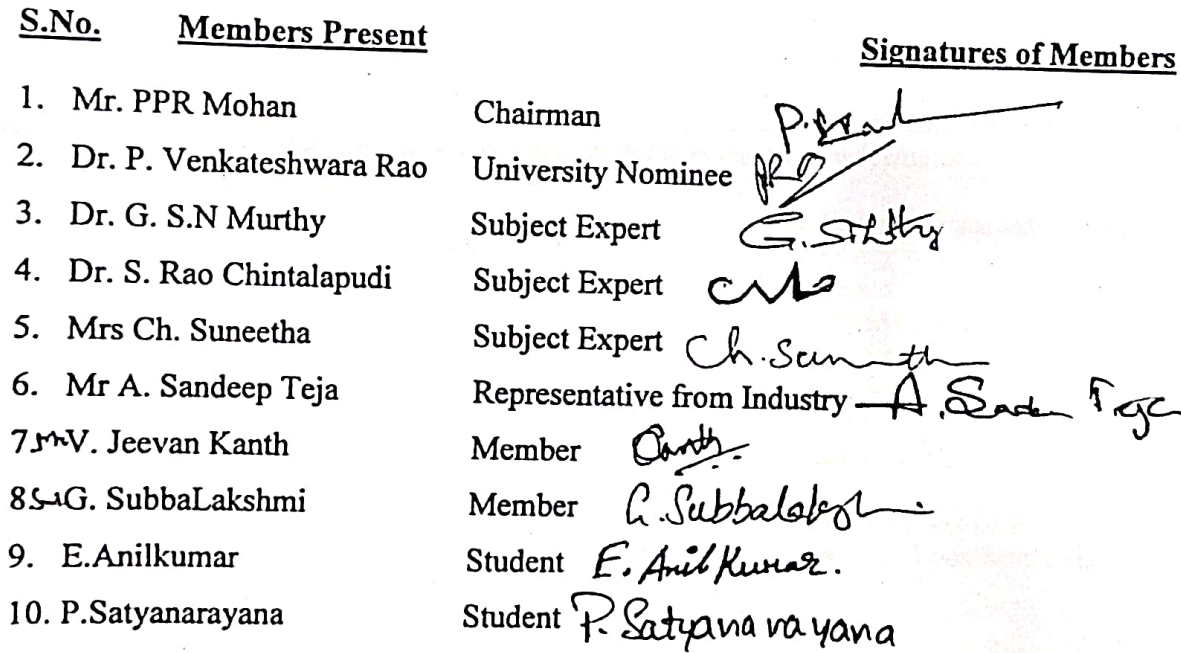 S.No. Members Present Signatures of Members
1. Mr. PPR Mohan Chairman
2. Dr. P. Venkateshwara Rao University Nominee
3. Dr. G. S.N Murthy Subject Expert
4. Dr. S. Rao Chintalapudi Subject Expert
5. Mrs Ch. Suneetha Subject Expert Ch.
6. Mr A. Sandeep Teja Representative from Industry A.
7 V. Jeevan Kanth Member
8 G. SubbaLakshmi Member G.
9. E.Anilkumar Student E. Anil Kumar.
10. P.Satyanarayana Student P. Satyanarayana